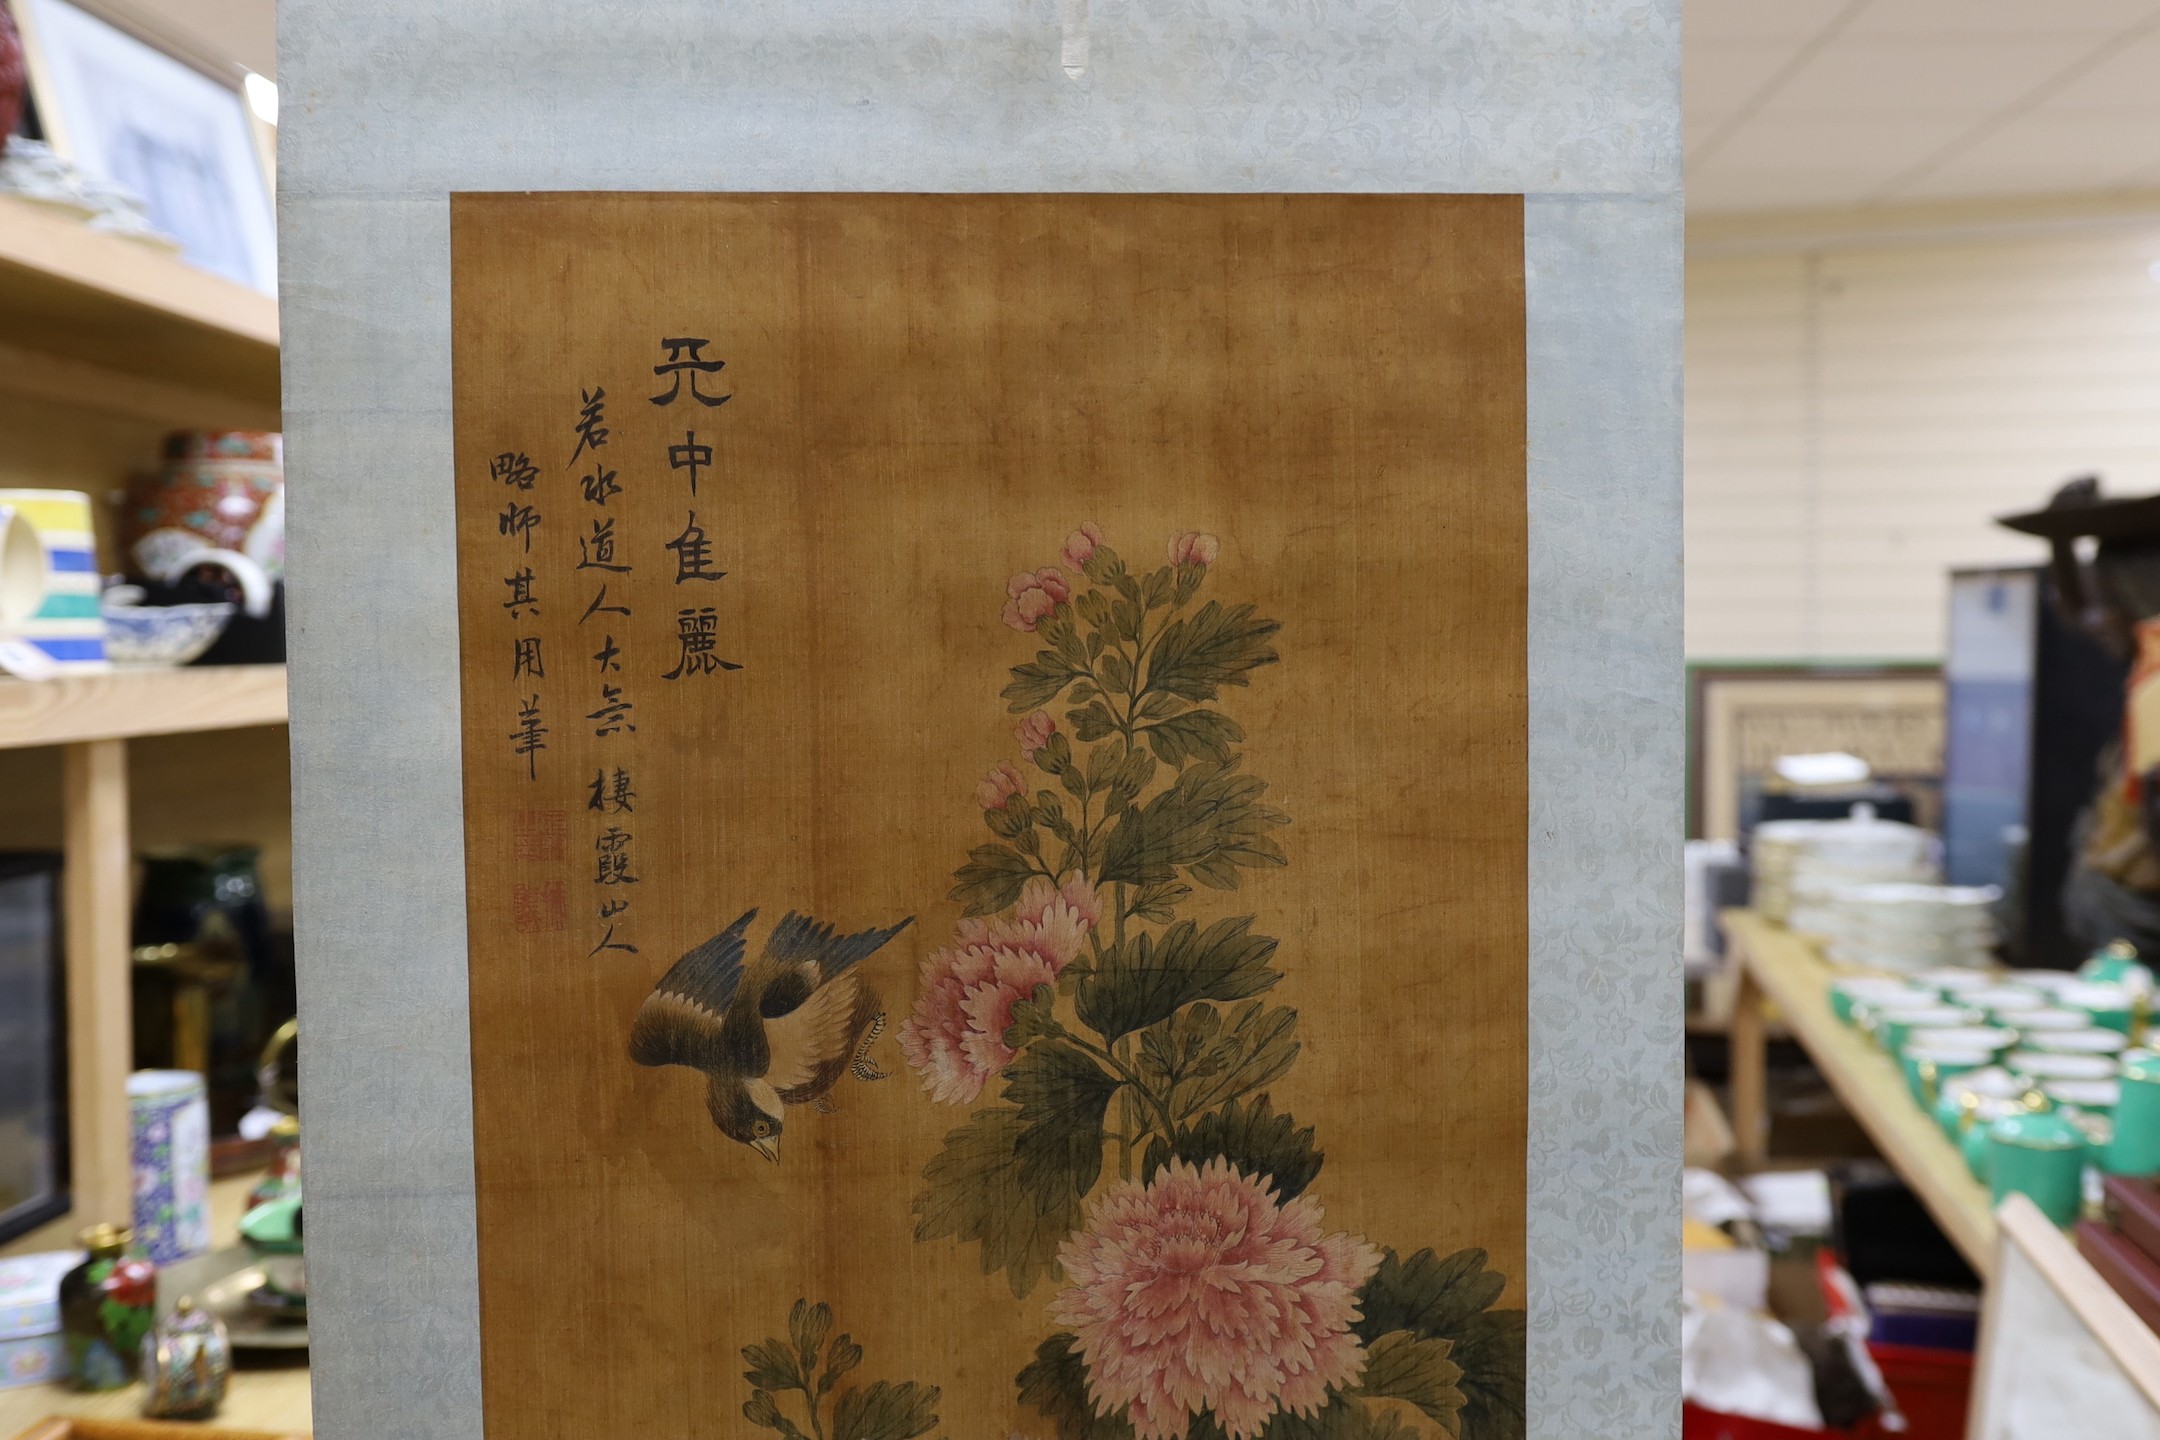 天中隹麗
若水道人大意 棲霞山人
略师其用筆